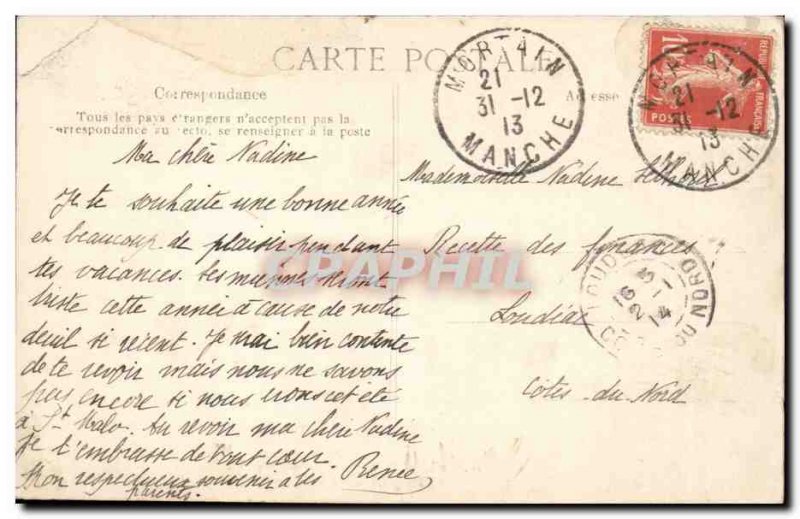 CARTE POSTALE
Correspondance
Adresse
Tous les pays étrangers n'acceptent pas la
correspondance au recto, se renseigner à la poste
MORTAIN
21
31 -12
13
MANCHE
MORTAIN
21
31 -12
13
MANCHE
REPUB
FRANÇAISE
10
POSTES
Ma chère Nadine
Je te souhaite une bonne année
et beaucoup de plaisir pendant
tes vacances. Les miennes seront
triste cette année à cause de notre
deuil si récent. Je suis bien contente
de te revoir mais nous ne savons
pas encore si nous irons cet été
à St Malo. Au revoir ma chère Nadine
Je t'embrasse de tout cœur.
Mon respectueux souvenir à tes Renée
parents.
Mademoiselle Nadine
Recette des finances
Loudéac
Côtes-du-Nord
LOUD
16
2 14
DU NORD
CPAPHIL